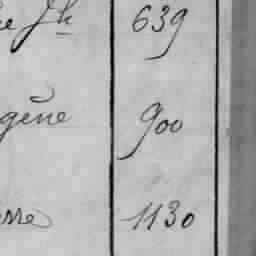 Jh 639
gène 900
erre 1130